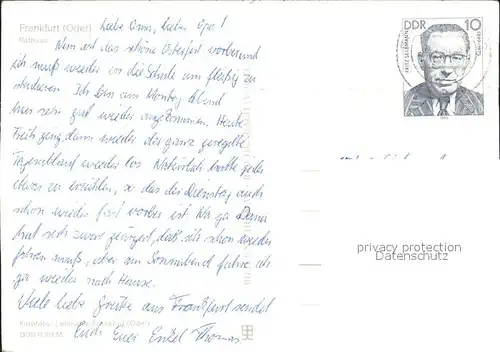 Frankfurt (Oder)
Rathaus
Liebe Oma, lieber Opa!
Nun ist das schöne Osterfest vorbei und
ich muß wieder in die Schule um fleißig zu
studieren. Ich bin am Montag Abend
hier sehr gut wieder angekommen. Heute
Früh ging dann wieder der ganz geregelte
Tagesablauf wieder los. Natürlich hatte jeder
etwas zu erzählen, so das der Dienstag auch
schon wieder fast vorbei ist. Diana
hat sich zwar geärgert, daß ich schon wieder
fahren muß, aber am Sonnabend fahre ich
ja wieder nach Hause.
Viele liebe Grüße aus Frankfurt sendet
Euch Euer Enkel Thomas
Frankfurt (Oder)
DDR 10
privacy protection
Datenschutz